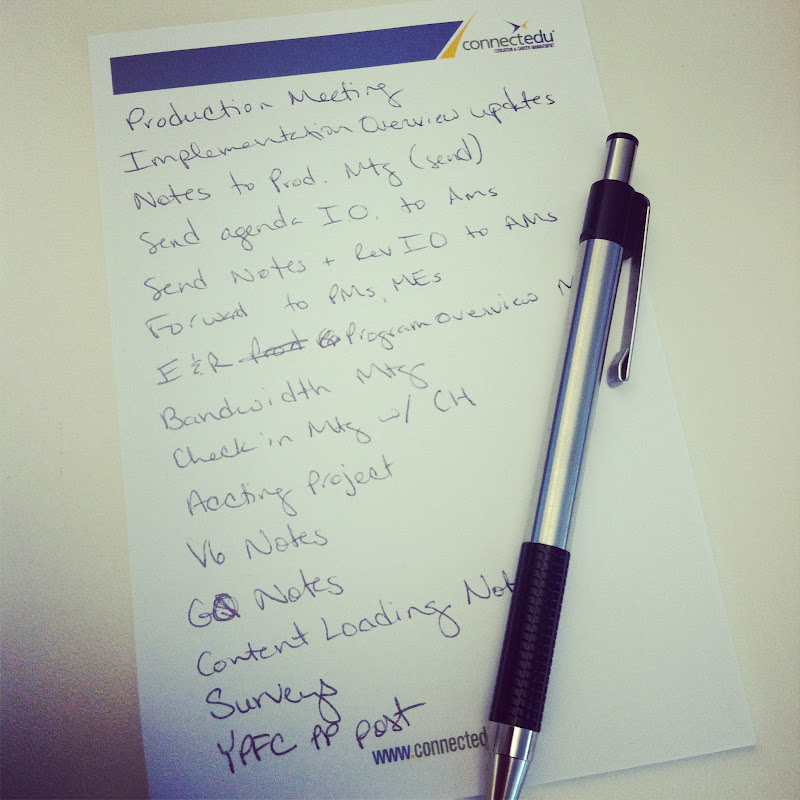 connectedu
EDUCATION & CAREER MANAGEMENT
Production Meeting
Implementation Overview updates
Notes to Prod. Mtg (send)
Send agenda I.O. to Ams
Send Notes + Rev IO to AMs
Forward to PMs, MEs
E & R Program Overview
Bandwidth Mtg
Check in Mtg w/ CH
Accting Project
V6 Notes
GQ Notes
Content Loading
Surveys
YPFC PP post
www.connected